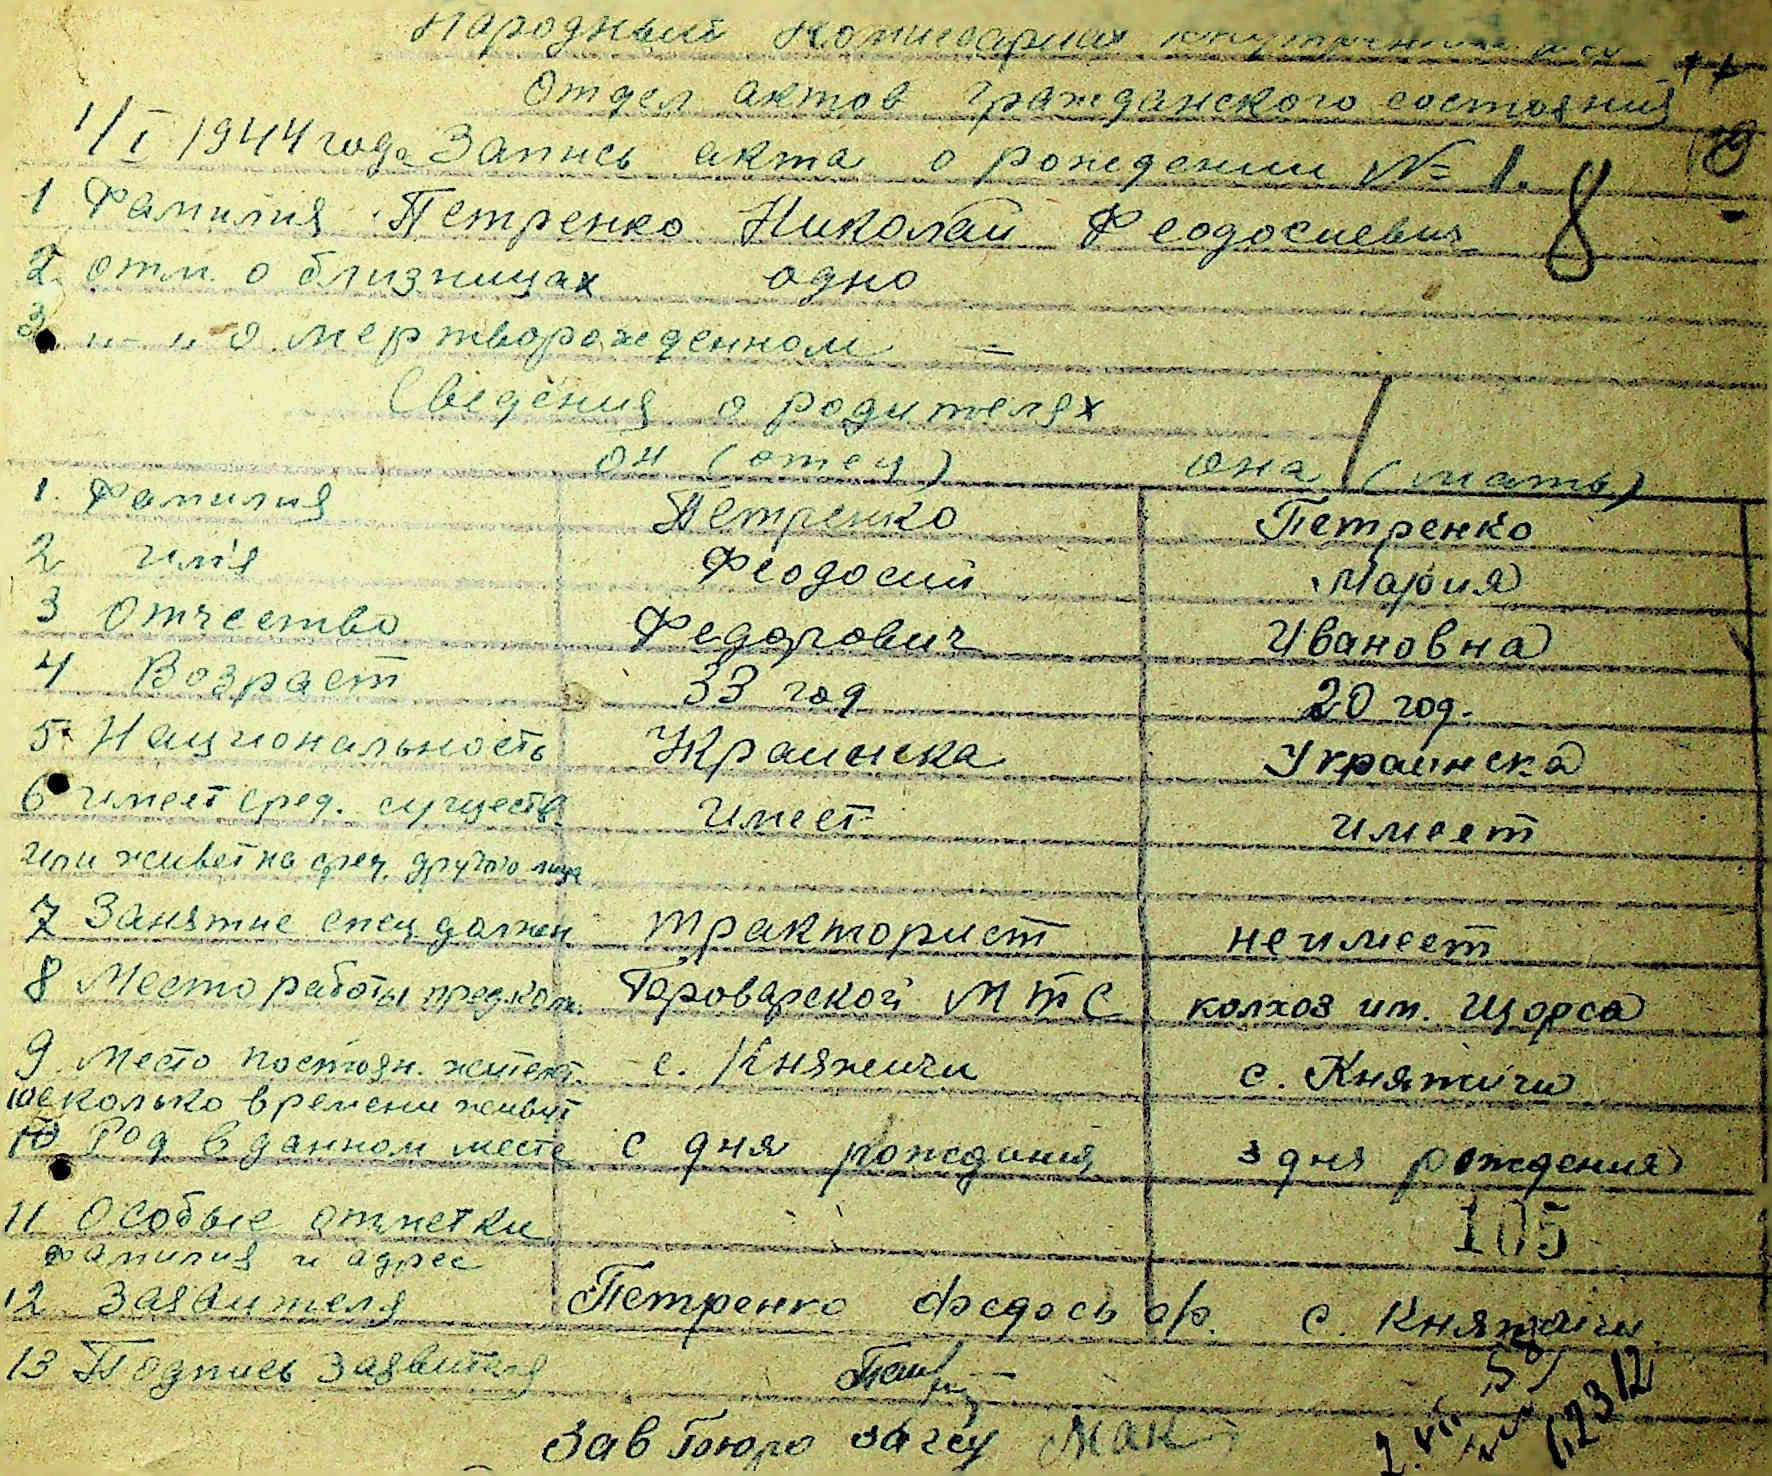 Народный Комиссариат внутренних дел
Отдел актов гражданского состояния
1/I 1944 года Запись акта о рождении № 1.
8
1 Фамилия Петренко Николай Феодосиевич
2 отм. о близницах одно
3 " " о мертворожденном —
Сведения о родителях
он (отец) она (мать)
1. Фамилия Петренко Петренко
2 имя Феодосий Мария
3 Отчество Федорович Ивановна
4 Возраст 33 год 20 год.
5. Национальность Украинска Украинска
6 имеет сред. существ. имеет имеет
или живет на сред. другого лица
7 Занятие спец должн тракторист не имеет
8 Место работы Броварской МТС колхоз им. Щорса
9 Место постоян. жител. с. Княжичи с. Княжичи
сколько времени живут
10 Год в данном месте с дня рождения з дня рождения
11 Особые отметки 105
фамилия и адрес
12 Заявителя Петренко Федось Ф. с. Княжичи
13 Подпись заявителя
Зав Бюро загсу